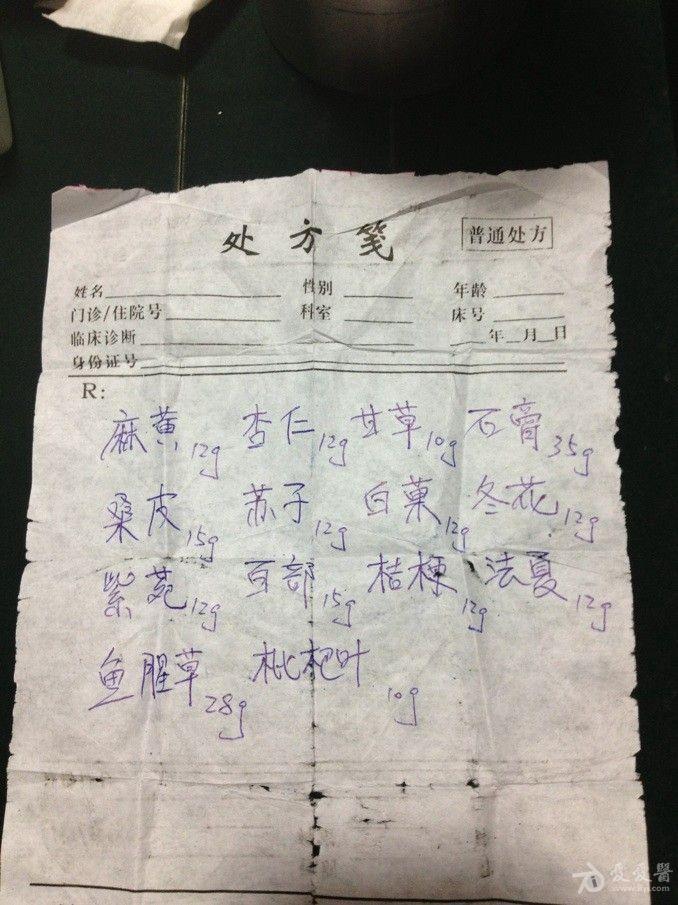 处方笺 普通处方
姓名 性别 年龄
门诊/住院号 科室 床号
临床诊断 年 月 日
身份证号
R:
麻黄12g 杏仁12g 甘草10g 石膏35g
桑皮15g 苏子12g 白菓12g 冬花12g
紫菀12g 百部15g 桔梗12g 法夏12g
鱼腥草28g 枇杷叶10g
爱爱醫